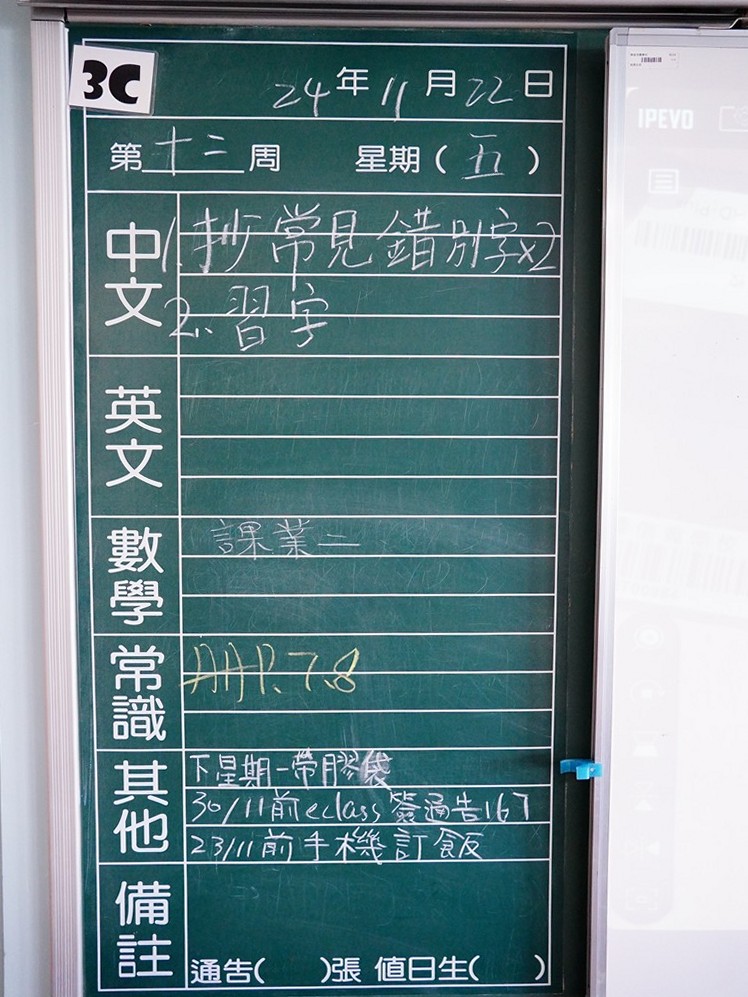 3C
24年11月22日
第十三周 星期(五)
中文
1.抄常見錯別字x2
2.習字
英文
數學
課業二
常識
P.7.8
其他
下星期一帶膠袋
30/11前eclass簽通告167
23/11前手機訂飯
備註
通告( )張 值日生( )
IPEVO